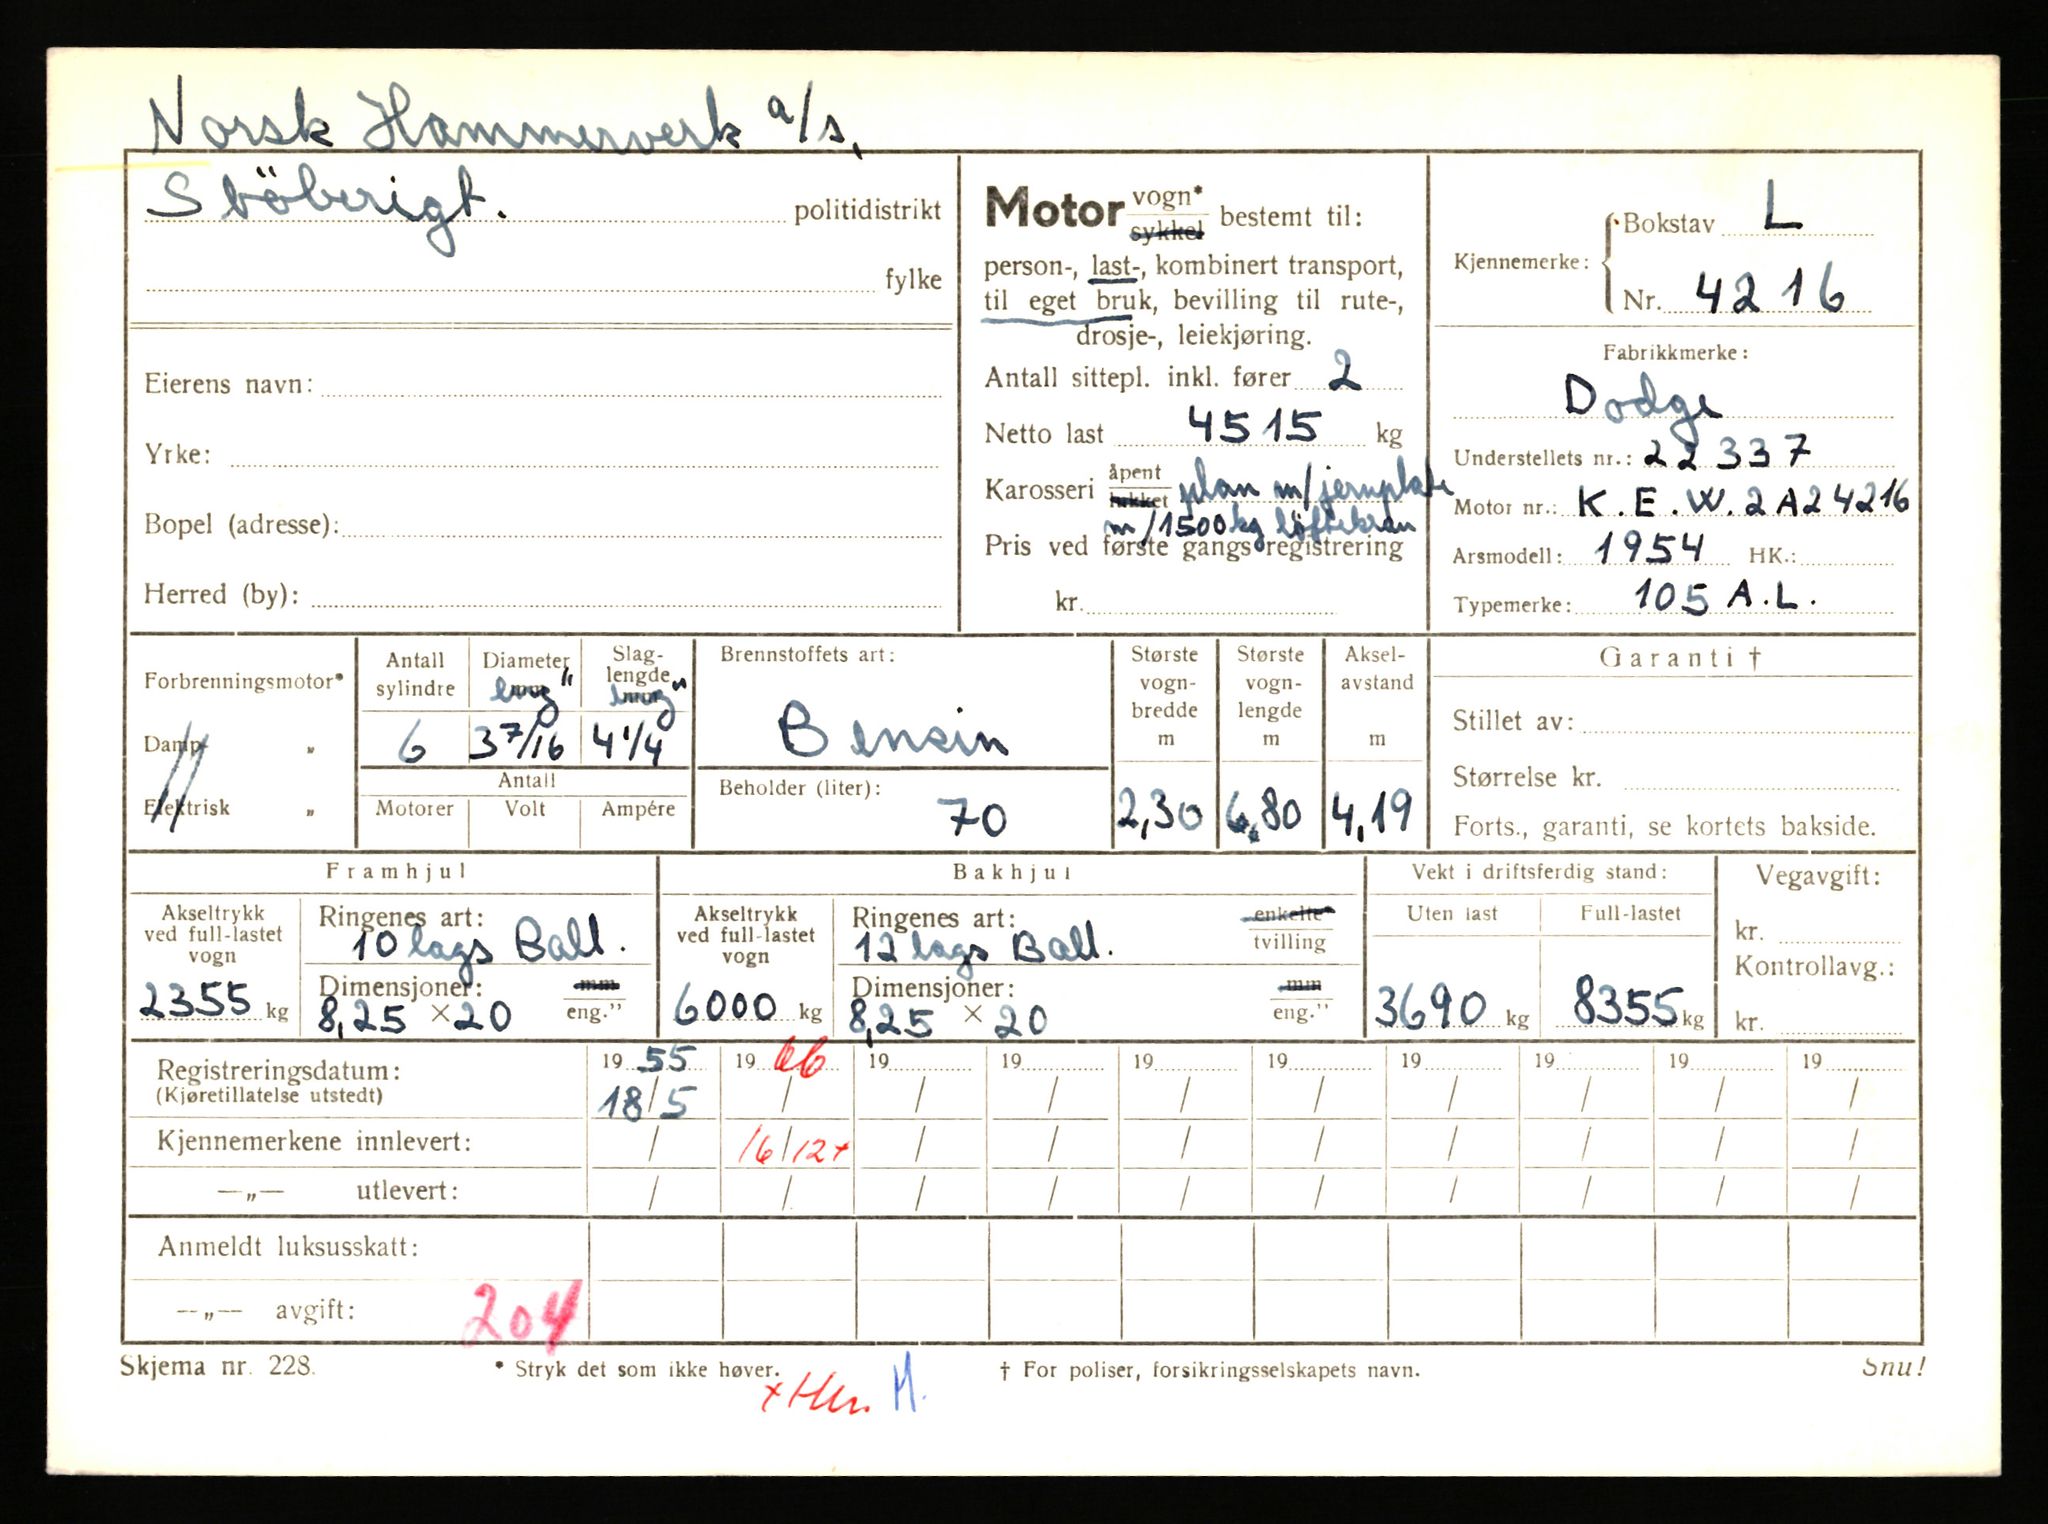 Norsk Hammerverk a/s,
Stöberigt. politidistrikt
fylke
Eierens navn:
Yrke:
Bopel (adresse):
Herred (by):
Motor vogn* sykkel bestemt til:
person-, last-, kombinert transport,
til eget bruk, bevilling til rute-,
drosje-, leiekjøring.
Antall sittepl. inkl. fører 2
Netto last 4515 kg
Karosseri åpent lukket plan m/jernplate
m/1500kg löftekran
Pris ved første gangs registrering
kr.
Kjennemerke: Bokstav L
Nr. 4216
Fabrikkmerke:
Dodge
Understellets nr.: 22337
Motor nr.: K.E.W.2A24216
Arsmodell: 1954 HK.:
Typemerke: 105 A.L.
Forbrenningsmotor*
Damp- „
Elektrisk „
Antall sylindre 6
Diameter mm eng" 3 7/16
Slaglengde mm eng" 4 1/4
Antall
Motorer Volt Ampére
Brennstoffets art:
Bensin
Beholder (liter):
70
Største vognbredde m 2,30
Største vognlengde m 6,80
Akselavstand m 4,19
Garanti †
Stillet av:
Størrelse kr.
Forts., garanti, se kortets bakside.
Framhjul
Akseltrykk ved full-lastet vogn 2355 kg
Ringenes art:
10 lags Ball.
Dimensjoner: mm
8,25 × 20 eng."
Bakhjul
Akseltrykk ved full-lastet vogn 6000 kg
Ringenes art: enkelte*
12 lags Ball. tvilling
Dimensjoner: mm
8,25 × 20 eng."
Vekt i driftsferdig stand:
Uten last Full-lastet
3690 kg 8355 kg
Vegavgift:
kr.
Kontrollavg.:
kr.
Registreringsdatum: 19 55 19 66 19 19 19 19 19 19 19 19
(Kjøretillatelse utstedt) 18/5 / / / / / / / / /
Kjennemerkene innlevert: / 16/12+ / / / / / / / /
—„— utlevert: / / / / / / / / / /
Anmeldt luksusskatt:
—„— avgift: 204
Skjema nr. 228. * Stryk det som ikke høver. † For poliser, forsikringsselskapets navn. Snu!
M.